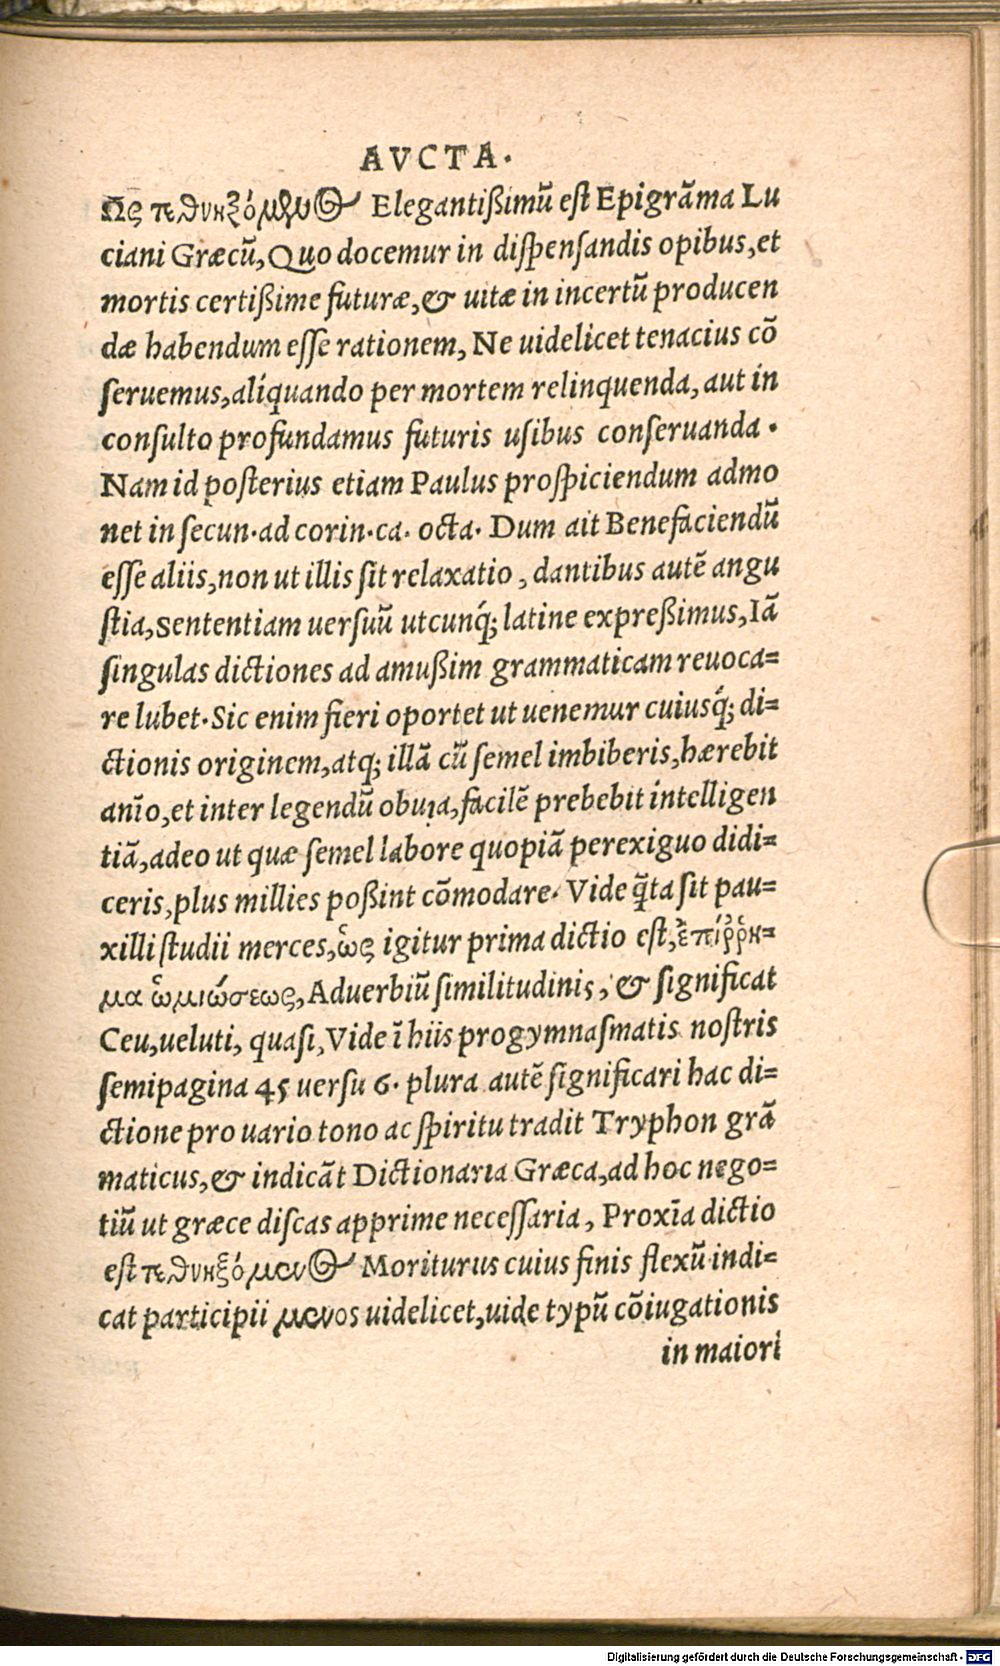 AVCTA.
Ως πεθνηξόμενος Elegantißimũ est Epigrãma Lu
ciani Græcũ, Quo docemur in dispensandis opibus, et
mortis certißime futuræ, & uitæ in incertũ producen
dæ habendum esse rationem, Ne uidelicet tenacius cõ
seruemus, aliquando per mortem relinquenda, aut in
consulto profundamus futuris usibus conseruanda.
Nam id posterius etiam Paulus prospiciendum admo
net in secun. ad corin. ca. octa. Dum ait Benefaciendũ
esse aliis, non ut illis sit relaxatio, dantibus autẽ angu
stia, sententiam uersuũ utcunq́; latine expreßimus, Iã
singulas dictiones ad amußim grammaticam reuoca=
re lubet. Sic enim fieri oportet ut uenemur cuiusq́; di=
ctionis originem, atq; illã cũ semel imbiberis, hærebit
anĩo, et inter legendũ obuia, facilẽ prebebit intelligen
tiã, adeo ut quæ semel labore quopiã perexiguo didi=
ceris, plus millies poßint cõmodare. Vide q̃ta sit pau=
xilli studii merces, ὥς igitur prima dictio est, ἐπίῤῥη=
μα ὡμιώσεως, Aduerbiũ similitudinis, & significat
Ceu, ueluti, quasi, Vide ĩ hiis progymnasmatis nostris
semipagina 45 uersu 6. plura autẽ significari hac di=
ctione pro uario tono ac spiritu tradit Tryphon grã
maticus, & indicãt Dictionaria Græca, ad hoc nego=
tiũ ut græce discas apprime necessaria, Proxĩa dictio
est πεθνηξόμενος Moriturus cuius finis flexũ indi=
cat participii μενος uidelicet, uide typũ cõiugationis
in maiori
Digitalisierung gefördert durch die Deutsche Forschungsgemeinschaft - DFG